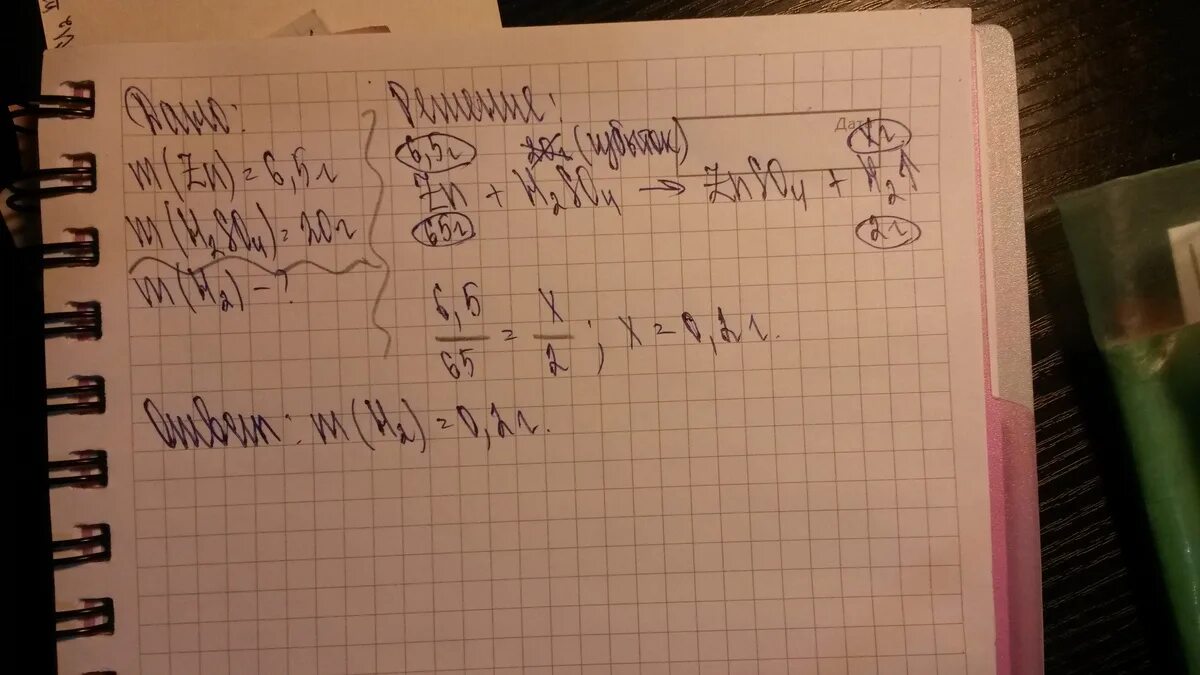 Дано:
m(Zn) = 6,5г
m(H₂SO₄) = 20г
m(H₂) - ?
Решение:
Дат
6,5г (избыток) xг
Zn + H₂SO₄ → ZnSO₄ + H₂↑
65г 2г
6,5/65 = x/2 ; x = 0,2г.
Ответ: m(H₂) = 0,2г.